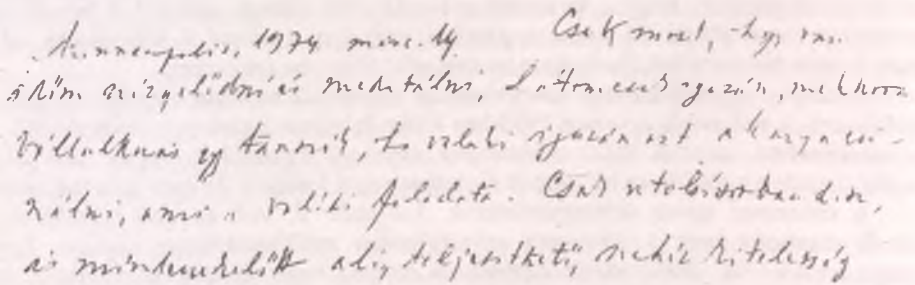 Minneapolis, 1974. márc. 14 Csak most, hogy van
időm vizsgálódni és meditálni, látom csak igazán, mekkora
vállalkozás egy tanszék, ha valaki igazán azt akarja csi-
nálni, ami a valódi feladata. Csak utolsósorban dísz,
és mindenekelőtt alig teljesíthető, nehéz kötelesség